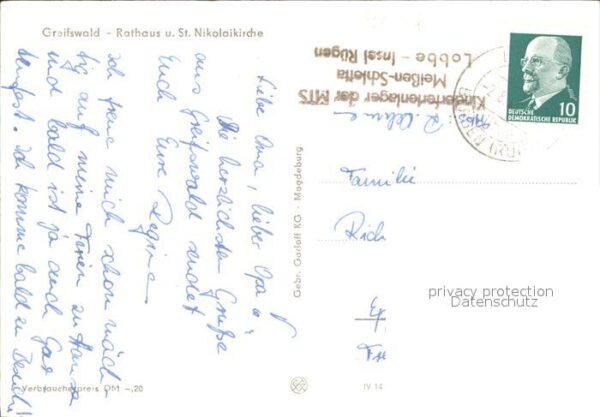 Greifswald - Rathaus u. St. Nikolaikirche
Liebe Oma, lieber Opa!
Die herzlichsten Grüße
aus Greifswald sendet
Euch Eure Regina
Ich freue mich schon mäch-
tig auf meine Ferien zu Hause
und bald ist ja auch Gar
tenfest. Ich komme bald zu Besuch!
Verbraucherpreis DM -,20
Gebr. Garloff KG · Magdeburg
IV 14
Kinderferienlager der MTS
Meißen-Schletta
Lobbe - Insel Rügen
DEUTSCHE
DEMOKRATISCHE REPUBLIK
10
Familie
Rich
privacy protection
Datenschutz